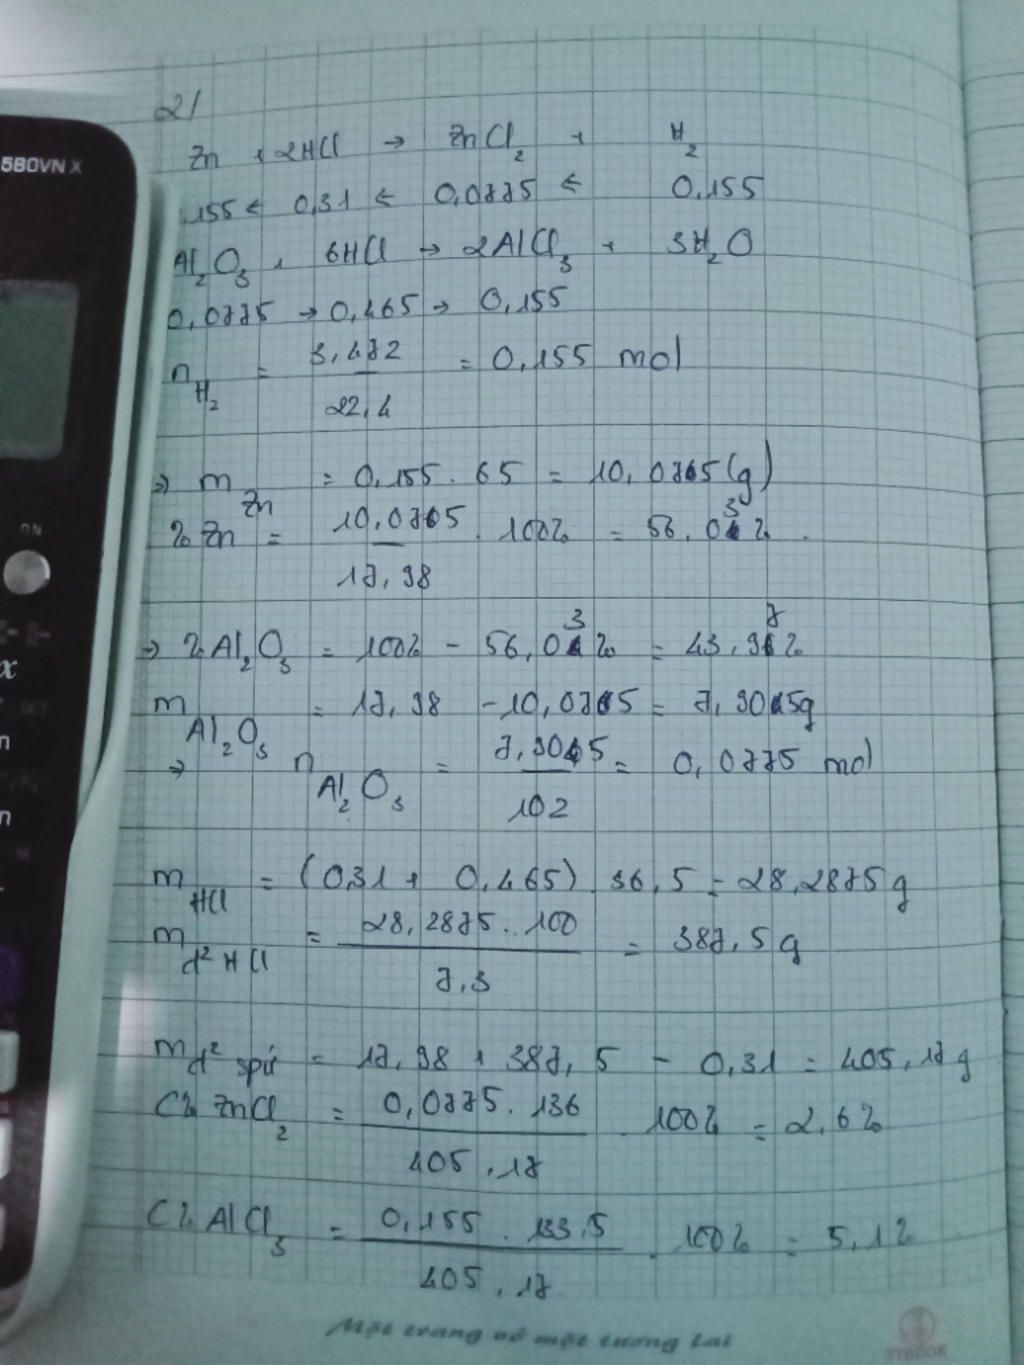 580VN X
2/
Zn + 2HCl → ZnCl2 + H2
,155 ← 0,31 ← 0,0775 ← 0,155
Al2O3 + 6HCl → 2AlCl3 + 3H2O
0,0775 → 0,465 → 0,155
nH2 = 3,472/22,4 = 0,155 mol
⇒ mZn = 0,155 . 65 = 10,075 (g)
% Zn = 10,075/17,98 . 100% = 56,03% .
→ % Al2O3 = 100% - 56,03% = 43,97%
mAl2O3 = 17,98 - 10,075 = 7,905g
→ nAl2O3 = 7,905/102 = 0,0775 mol
mHCl = (0,31 + 0,465) . 36,5 = 28,2875 g
md2 HCl = 28,2875 . 100/7,3 = 387,5 g
md2 spứ = 17,98 + 387,5 - 0,31 = 405,17 g
C% ZnCl2 = 0,0775 . 136/405,17 . 100% = 2,6%
C% AlCl3 = 0,155 . 133,5/405,17 . 100% = 5,1%
Một trang vở một tương lai